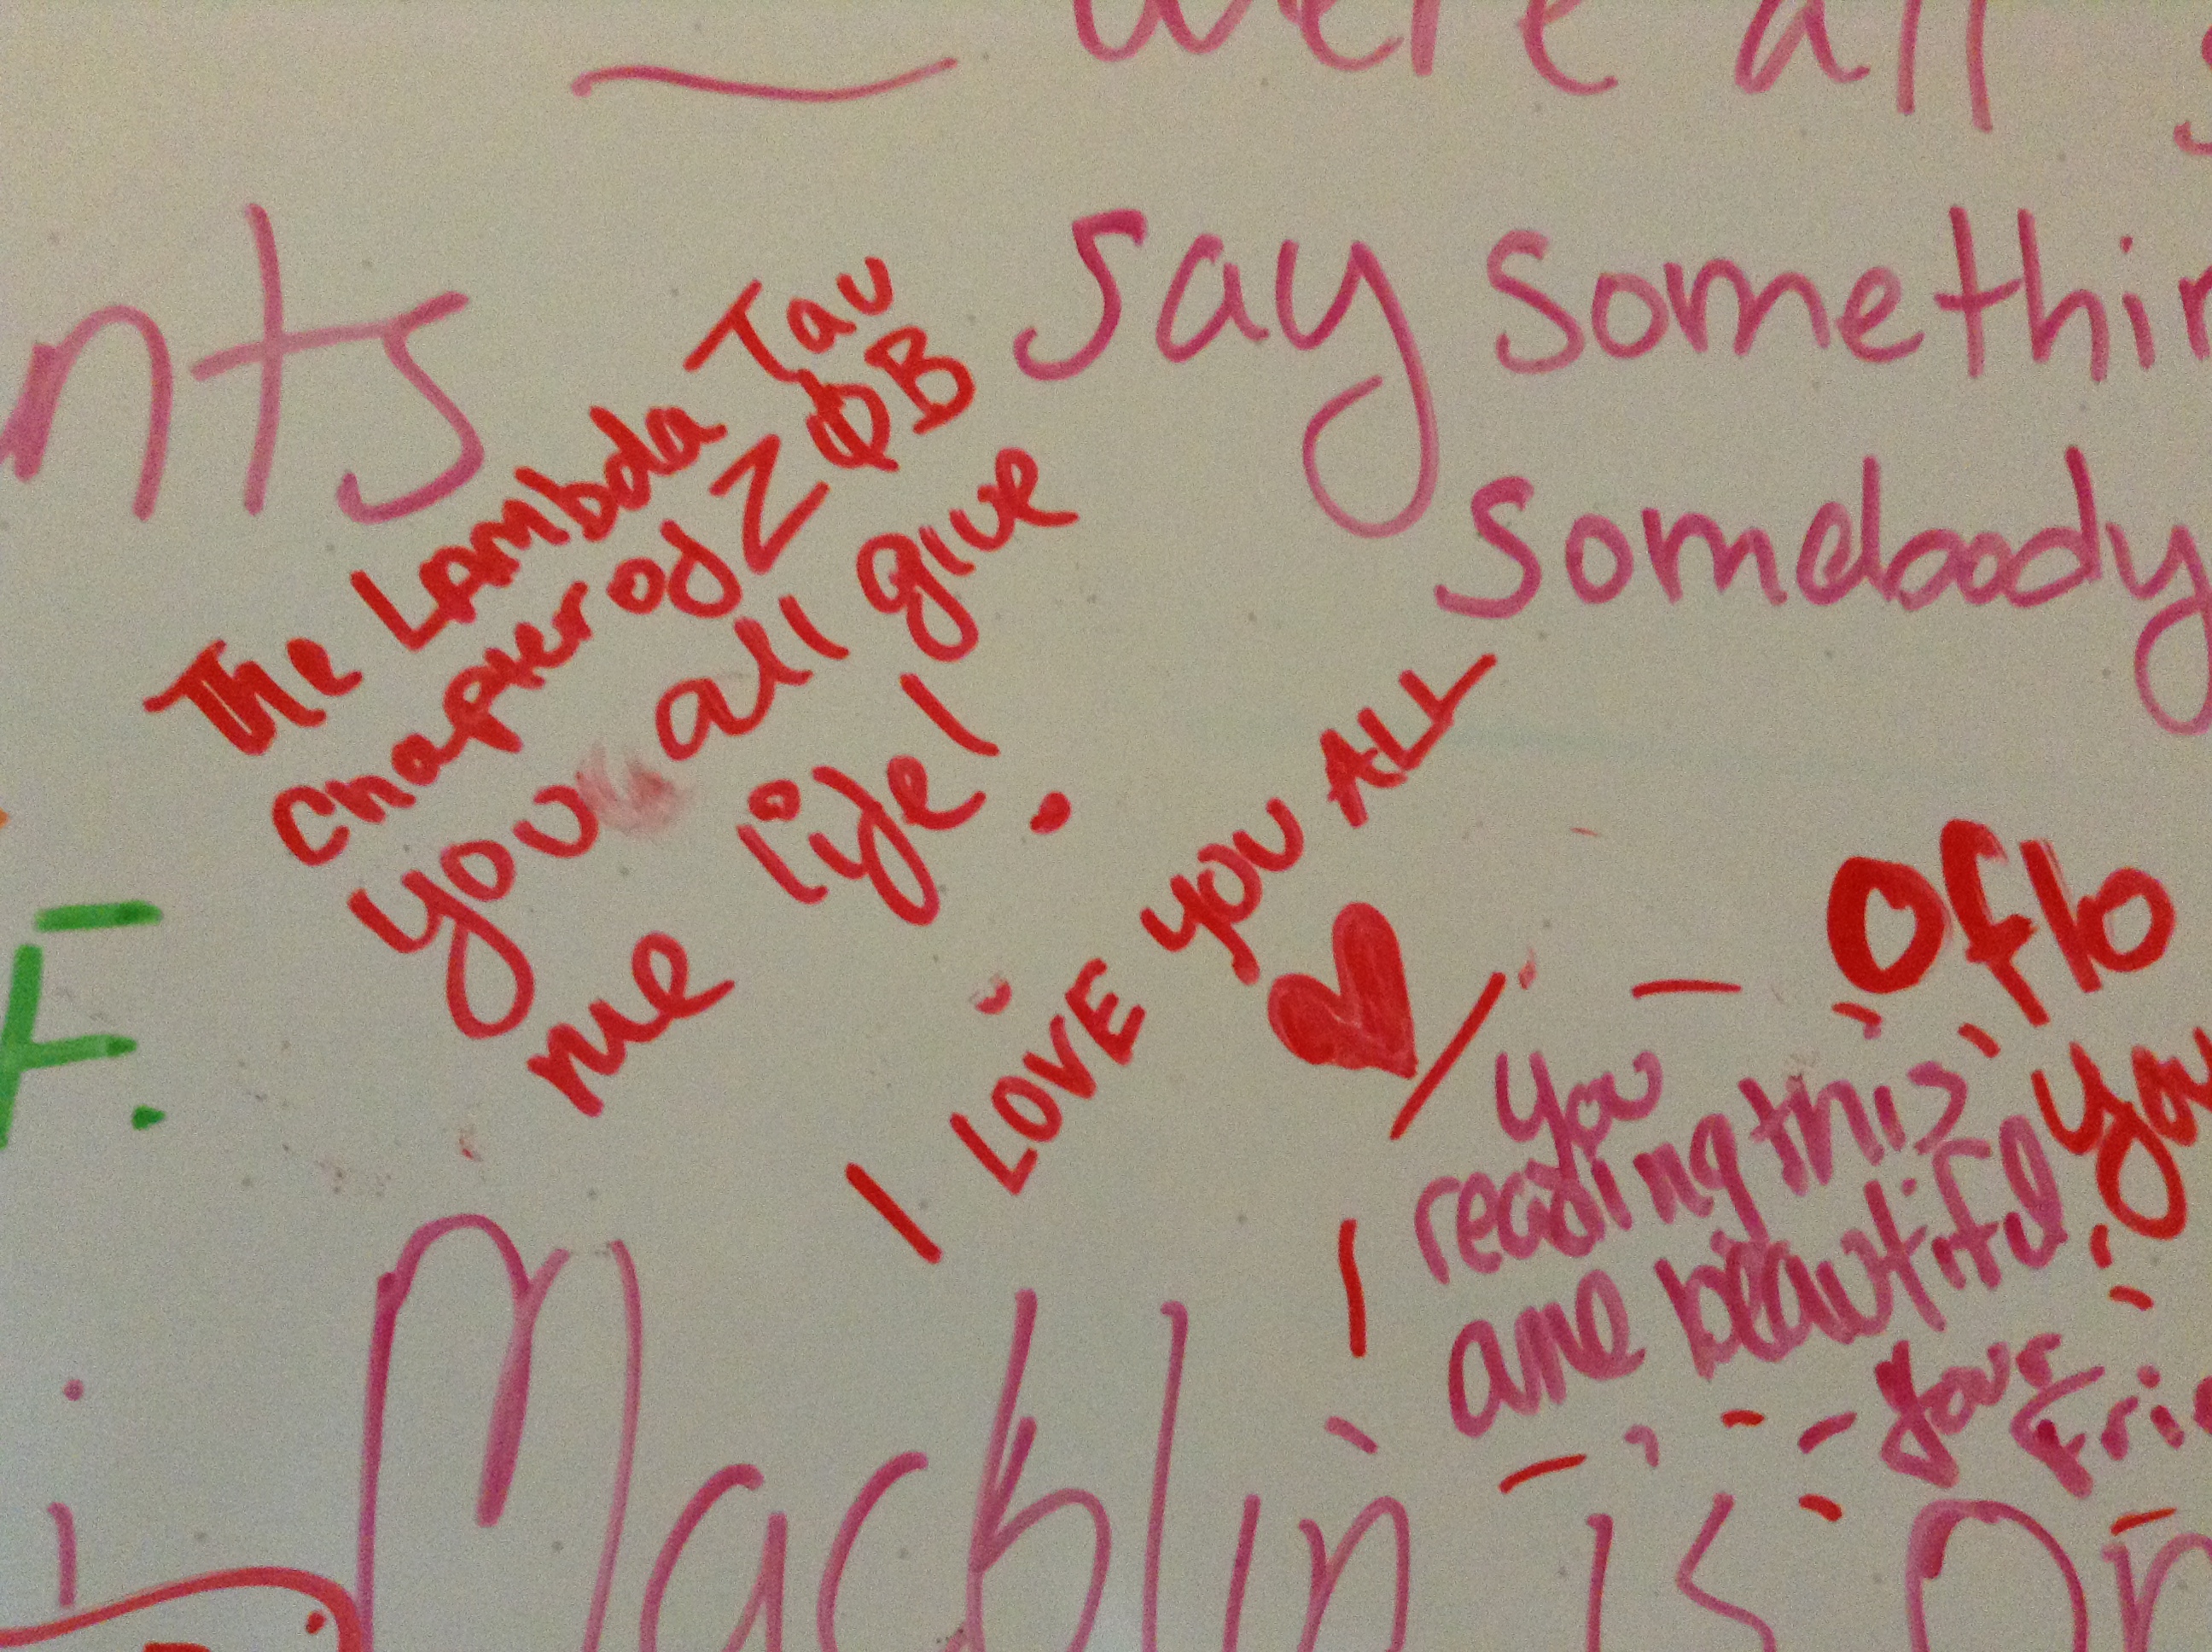 were all
nts
say somethin
somebody
The LAmbda Tau
chapter of ZΦB
you all give
me life!
I LOVE YOU ALL
F.
Oflo
you
you
reading this
are beautiful
- your
Frie
Macklin is on